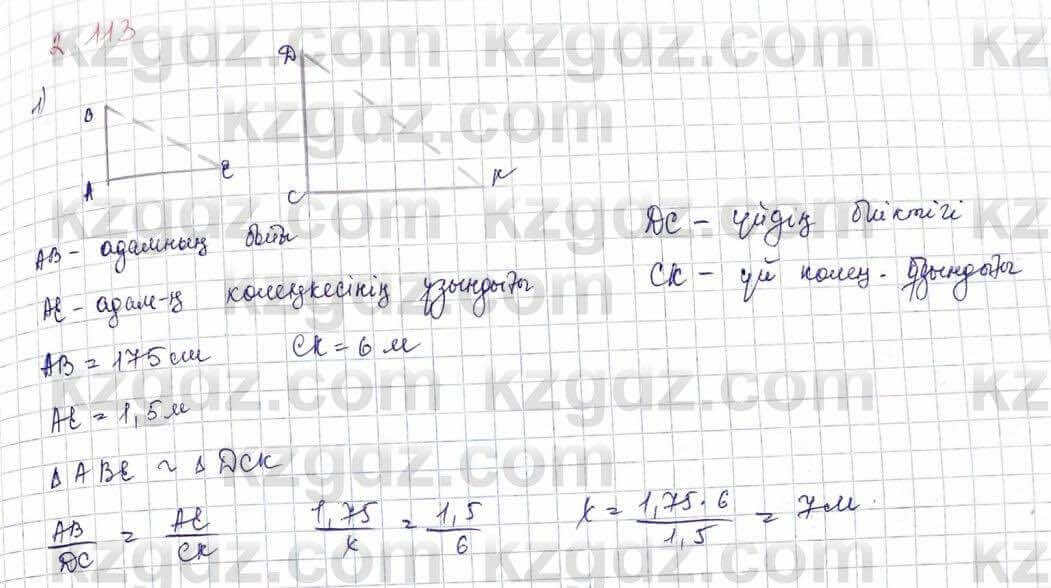 2.113
1)
B
A
E
D
C
K
AB - адамның бойы
AE - адам-ң көлеңкесінің ұзындығы
DC - үйдің биіктігі
CK - үй көлең. ұзындығы
AB = 175 см CK = 6 м
AE = 1,5 м
Δ ABE ~ Δ DCK
AB/DC = AE/CK 1,75/x = 1,5/6 x = 1,75·6/1,5 = 7 м.
kzgdz.com